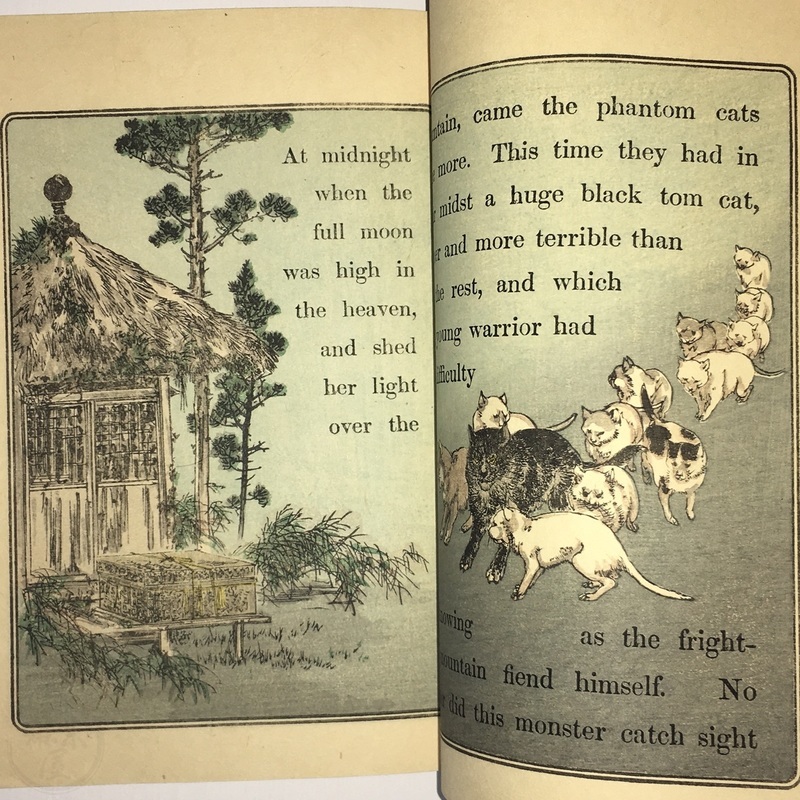 At midnight
when the
full moon
was high in
the heaven,
and shed
her light
over the
came the phantom cats
more. This time they had in
midst a huge black tom cat,
and more terrible than
rest, and which
warrior had
as the fright-
fiend himself. No
did this monster catch sight